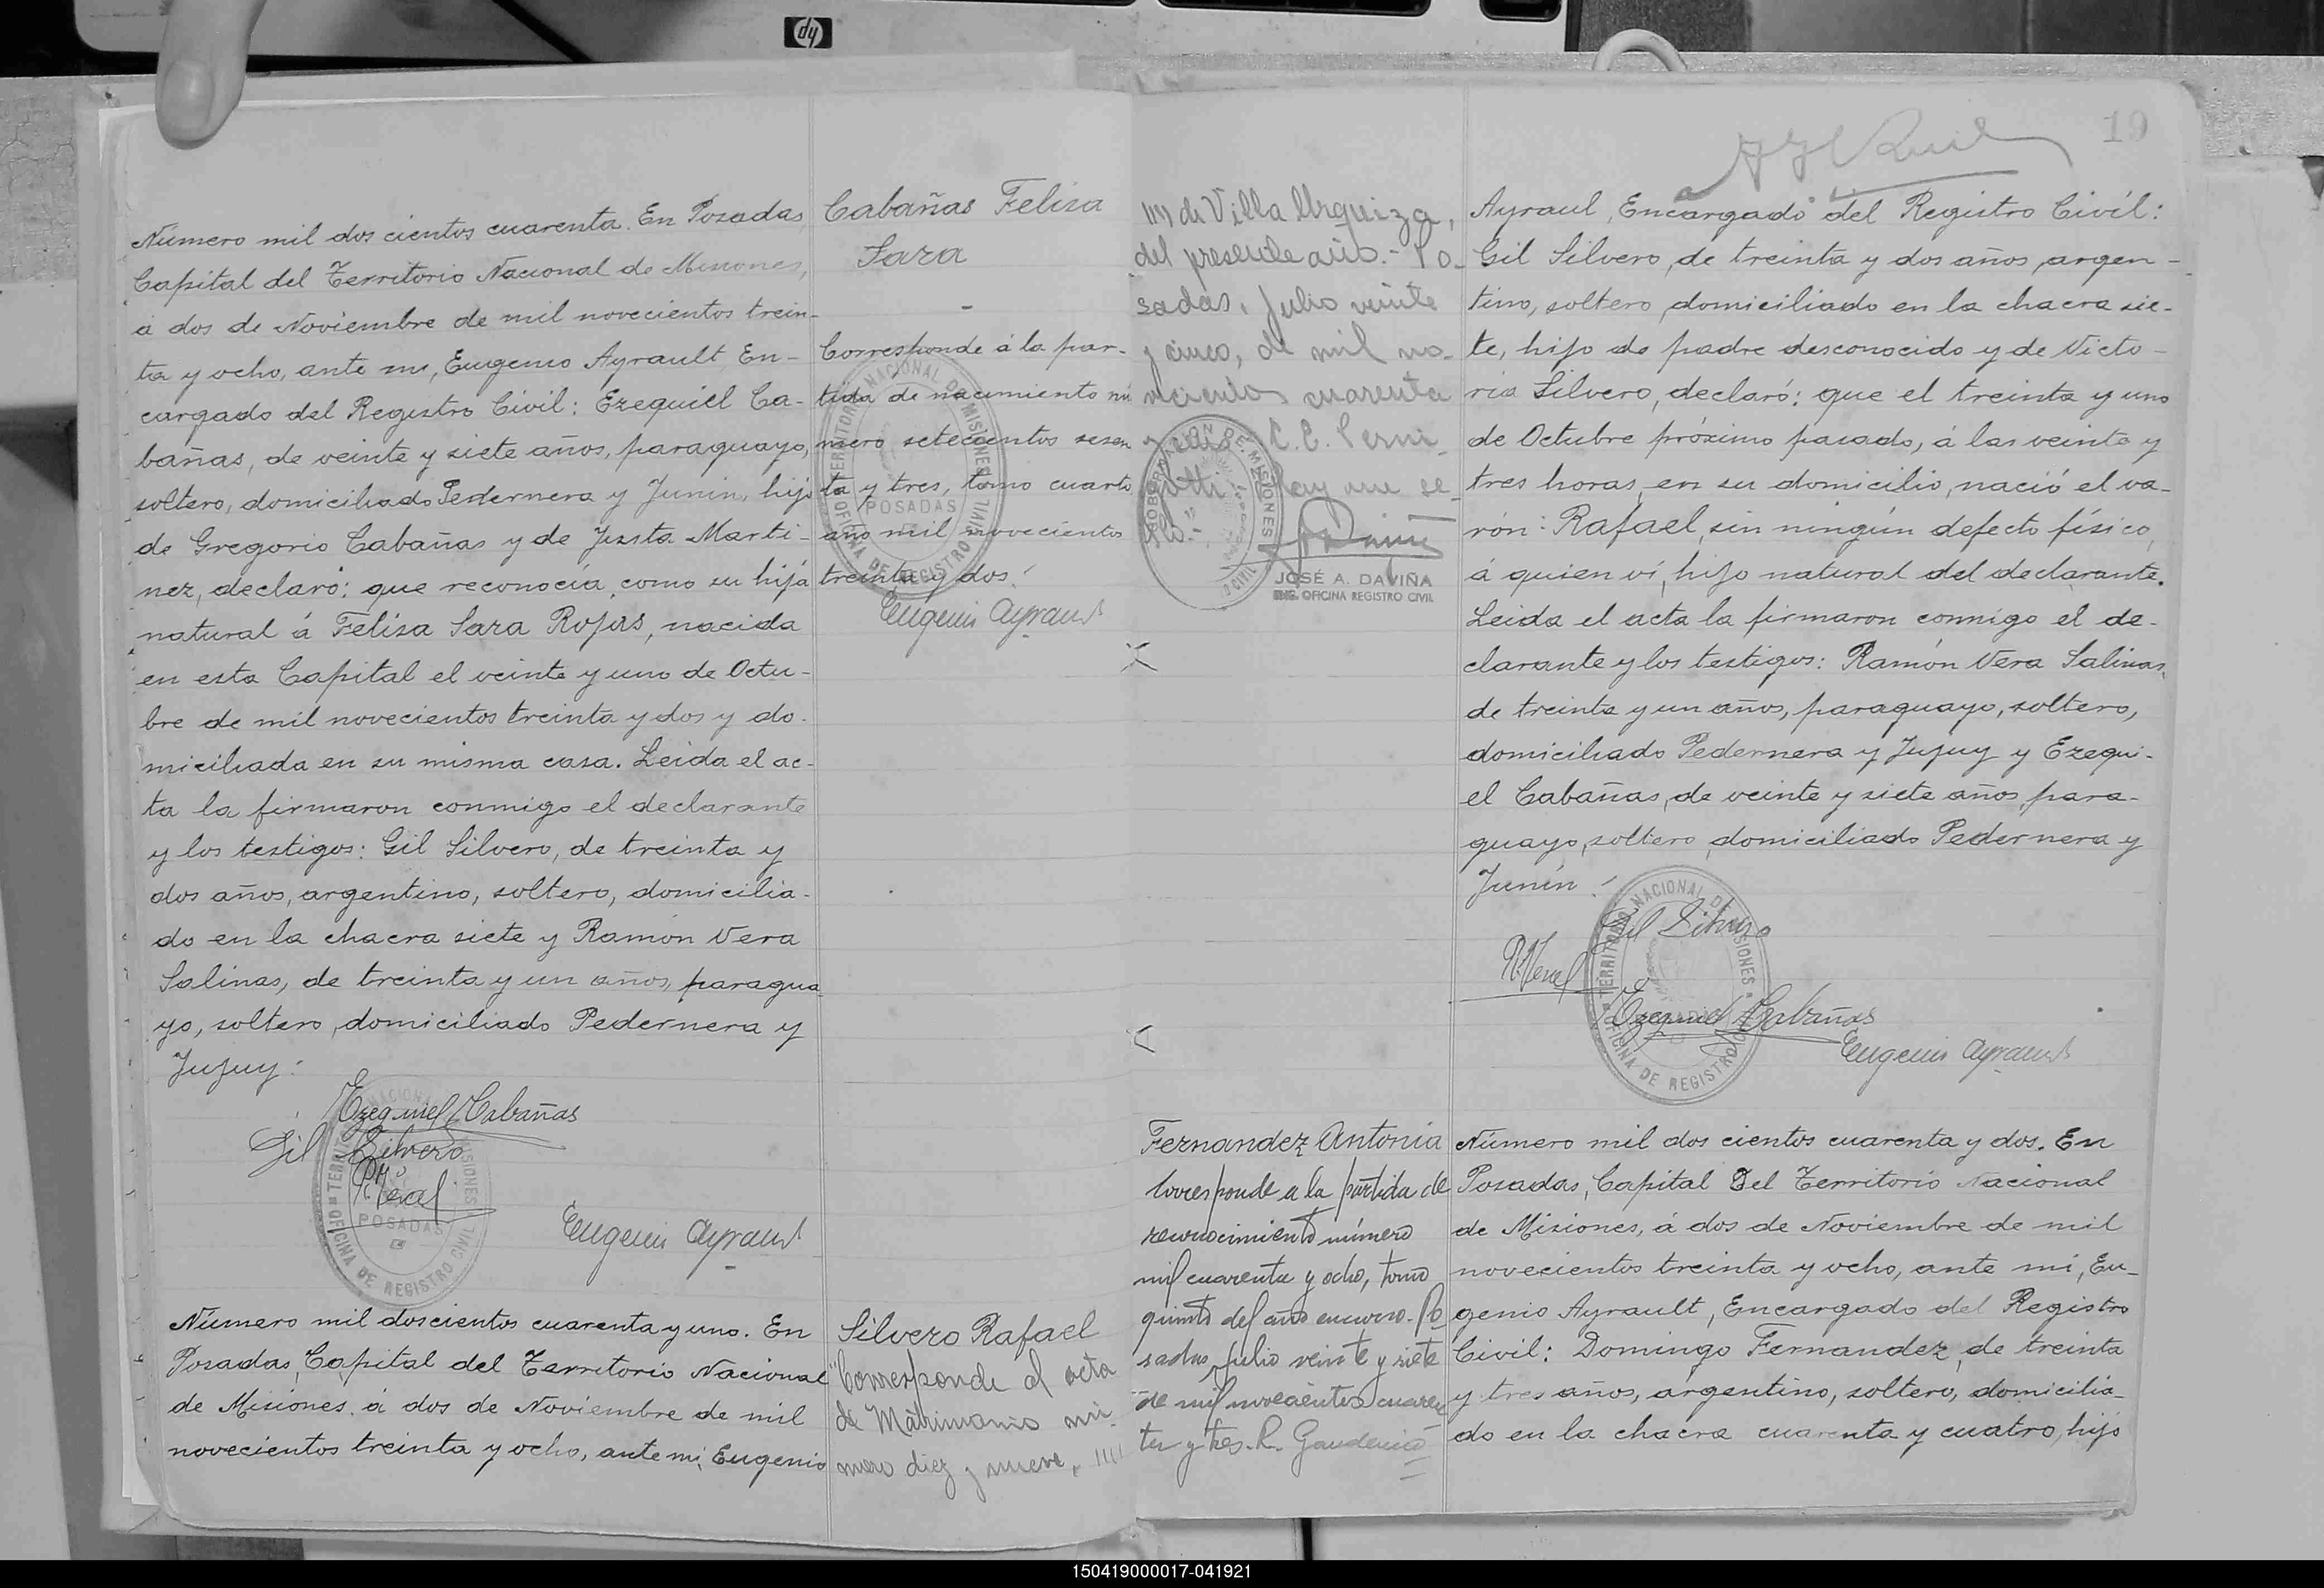 hp
Número mil dos cientos cuarenta. En Posadas,
Capital del Territorio Nacional de Misiones,
a dos de Noviembre de mil novecientos trein-
ta y ocho, ante mi, Eugenio Ayrault, En-
cargado del Registro Civil: Ezequiel Ca-
bañas, de veinte y siete años, paraguayo,
soltero, domiciliado Pedernera y Junin, hijo
de Gregorio Cabañas y de Justa Marti-
nez, declaró: que reconocía como su hija
natural á Felisa Sara Rojas, nacida
en esta Capital el veinte y uno de Octu-
bre de mil novecientos treinta y dos y do-
miciliada en su misma casa. Leida el ac-
ta la firmaron conmigo el declarante
y los testigos: Gil Silvero, de treinta y
dos años, argentino, soltero, domicilia-
do en la chacra siete y Ramón Vera
Salinas, de treinta y un años, paragua-
yo, soltero, domiciliado Pedernera y
Jujuy.
Ezequiel Cabañas
Gil Silvero
Eugenio Ayrault
TERRITORIO NACIONAL DE MISIONES
POSADAS
OFICINA DE REGISTRO CIVIL
Cabañas Felisa
Sara
-
Corresponde á la par-
tida de nacimiento nú
mero setecientos sesen
ta y tres, tomo cuarto
año mil novecientos
treinta y dos.
Eugenio Ayrault
TERRITORIO NACIONAL DE MISIONES
POSADAS
OFICINA DE REGISTRO CIVIL
Número mil doscientos cuarenta y uno. En
Posadas, Capital del Territorio Nacional
de Misiones, á dos de Noviembre de mil
novecientos treinta y ocho, ante mi, Eugenio
Silvero Rafael
Corresponde al acta
de Matrimonio nú-
mero diez y nueve,
de Villa Urquiza,
del presente año.- Po-
sadas, Julio veinte
y cinco, de mil no-
vecientos cuarenta
Hay un se-
llo.-
GOBERNACION DE MISIONES
JOSÉ A. DAVIÑA
ENC. OFICINA REGISTRO CIVIL
19
Ayraul, Encargado del Registro Civil:
Gil Silvero, de treinta y dos años, argen-
tino, soltero, domiciliado en la chacra sie-
te, hijo de padre desconocido y de Victo-
ria Silvero, declaró: que el treinta y uno
de Octubre próximo pasado, á las veinte y
tres horas, en su domicilio, nació el va-
rón: Rafael, sin ningún defecto físico,
á quien ví, hijo natural del declarante.
Leida el acta la firmaron conmigo el de-
clarante y los testigos: Ramón Vera Salinas,
de treinta y un años, paraguayo, soltero,
domiciliado Pedernera y Jujuy y Ezequi-
el Cabañas, de veinte y siete años, para-
guayo, soltero, domiciliado Pedernera y
Junín.
Gil Silvero
Ezequiel Cabañas
Eugenio Ayrault
TERRITORIO NACIONAL DE MISIONES
OFICINA DE REGISTRO CIVIL
Fernandez Antonia
Corresponde a la partida de
reconocimiento número
mil cuarenta y ocho, tomo
quinto del año en curso. Po
sadas, Julio veinte y siete
de mil novecientos cuaren
ta y tres. R. Gaudencio
Número mil dos cientos cuarenta y dos. En
Posadas, Capital Del Territorio Nacional
de Misiones, á dos de Noviembre de mil
novecientos treinta y ocho, ante mi, Eu-
genio Ayrault, Encargado del Registro
Civil: Domingo Fernandez, de treinta
y tres años, argentino, soltero, domicilia-
do en la chacra cuarenta y cuatro, hijo
150419000017-041921